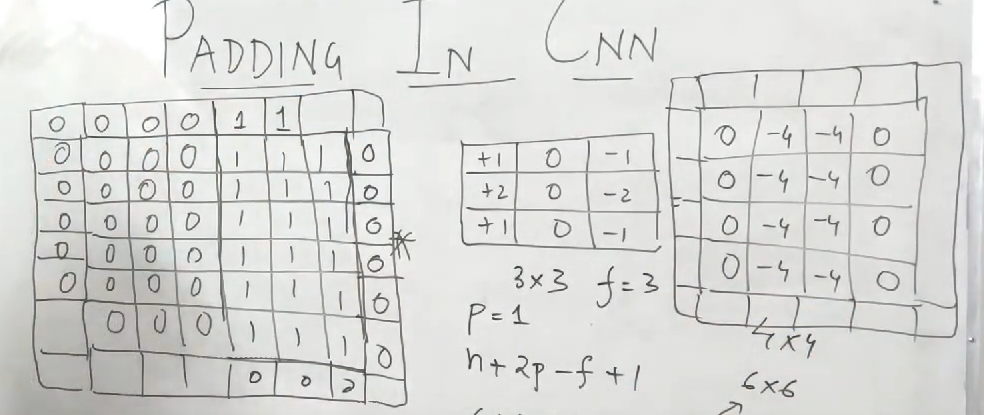 PADDING IN CNN
0 0 0 0 1 1
0 0 0 0 1 1 1 0
0 0 0 0 1 1 1 0
0 0 0 0 1 1 1 0
0 0 0 0 1 1 1 0
0 0 0 0 1 1 1 0
0 0 0 1 1 1 0
0 0
*
+1 0 -1
+2 0 -2
+1 0 -1
3×3 f=3
P=1
n+2p-f+1
=
0 -4 -4 0
0 -4 -4 0
0 -4 -4 0
0 -4 -4 0
4×4
6×6